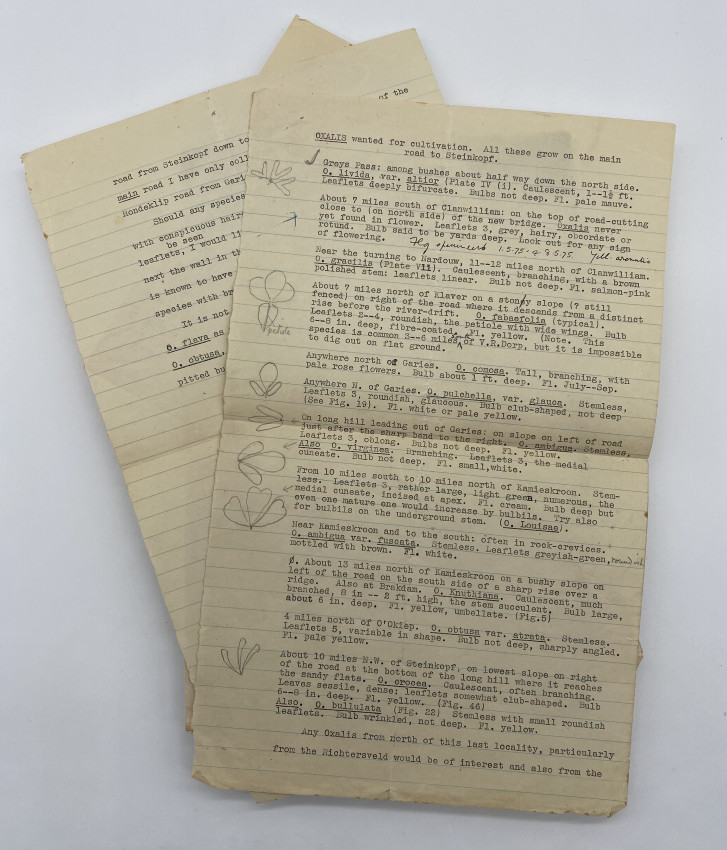 OXALIS wanted for cultivation. All these grow on the main
road to Steinkopf.
Greys Pass: among bushes about half way down the north side.
O. livida, var. altior (Plate IV (i). Caulescent, 1--1½ ft.
Leaflets deeply bifurcate. Bulbs not deep. Fl. pale mauve.
About 7 miles south of Clanwilliam: on the top of road-cutting
close to (on north side) of the new bridge. Oxalis never
yet found in flower. Leaflets 3, grey, hairy, obcordate or
rotund. Bulb said to be yards deep. Look out for any sign
of flowering. 1.5.75 8.5.75. Yell.
Near the turning to Nardouw, 11--12 miles north of Clanwilliam.
O. gracilis (Plate VII). Caulescent, branching, with a brown
polished stem: leaflets linear. Bulb not deep. Fl. salmon-pink
About 7 miles north of Klaver on a stony slope (? still
fenced) on right of the road where it descends from a distinct
rise before the river-drift. O. fabaefolia (typical).
Leaflets 2--4, roundish, the petiole with wide wings. Bulb
6--8 in. deep, fibre-coated. Fl. yellow. (Note. This
species is common 3--6 miles of V.R.Dorp, but it is impossible
to dig out on flat ground.
petiole
Anywhere north of Garies. O. comosa. Tall, branching, with
pale rose flowers. Bulb about 1 ft. deep. Fl. July--Sep.
Anywhere N. of Garies. O. pulchella, var. glauca. Stemless,
Leaflets 3, roundish, glaucous. Bulb club-shaped, not deep
(See Fig. 19). Fl. white or pale yellow.
On long hill leading out of Garies: on slope on left of road
just after the sharp bend to the right. O. ambigua. Stemless,
Leaflets 3, oblong. Bulbs not deep. Fl. yellow.
Also O. virginea. Branching. Leaflets 3, the medial
cuneate. Bulb not deep. Fl. small, white.
From 10 miles south to 10 miles north of Kamieskroon. Stem-
less. Leaflets 3, rather large, light green, numerous, the
medial cuneate, incised at apex. Fl. cream. Bulb deep but
even one mature one would increase by bulbils. Try also
for bulbils on the underground stem. (O. Louisae).
Near Kamieskroon and to the south: often in rock-crevices.
O. ambigua var. fuscata. Stemless. Leaflets greyish-green,
mottled with brown. Fl. white.
O. About 13 miles north of Kamieskroon on a bushy slope on
left of the road on the south side of a sharp rise over a
ridge. Also at Brakdam. O. Knuthiana. Caulescent, much
branched, 8 in -- 2 ft. high, the stem succulent. Bulb large,
about 6 in. deep. Fl. yellow, umbellate. (Fig.5)
4 miles north of O'Okiep. O. obtusa var. atrata. Stemless.
Leaflets 5, variable in shape. Bulb not deep, sharply angled.
Fl. pale yellow.
About 10 miles N.W. of Steinkopf, on lowest slope on right
of the road at the bottom of the long hill where it reaches
the sandy flats. O. crocea. Caulescent, often branching.
Leaves sessile, dense: leaflets somewhat club-shaped. Bulb
6--8 in. deep. Fl. yellow. (Fig. 46)
Also. O. bullulata (Fig. 22) Stemless with small roundish
leaflets. Bulb wrinkled, not deep. Fl. yellow.
Any Oxalis from north of this last locality, particularly
from the Richtersveld would be of interest and also from the
of the
road from Steinkopf down to
main road I have only coll
Hondeklip road from Gari
Should any species
with conspicuous hair
be seen
leaflets, I would li
next the wall in th
is known to have
species with br
It is not
O. flava as
O. obtusa,
pitted bu